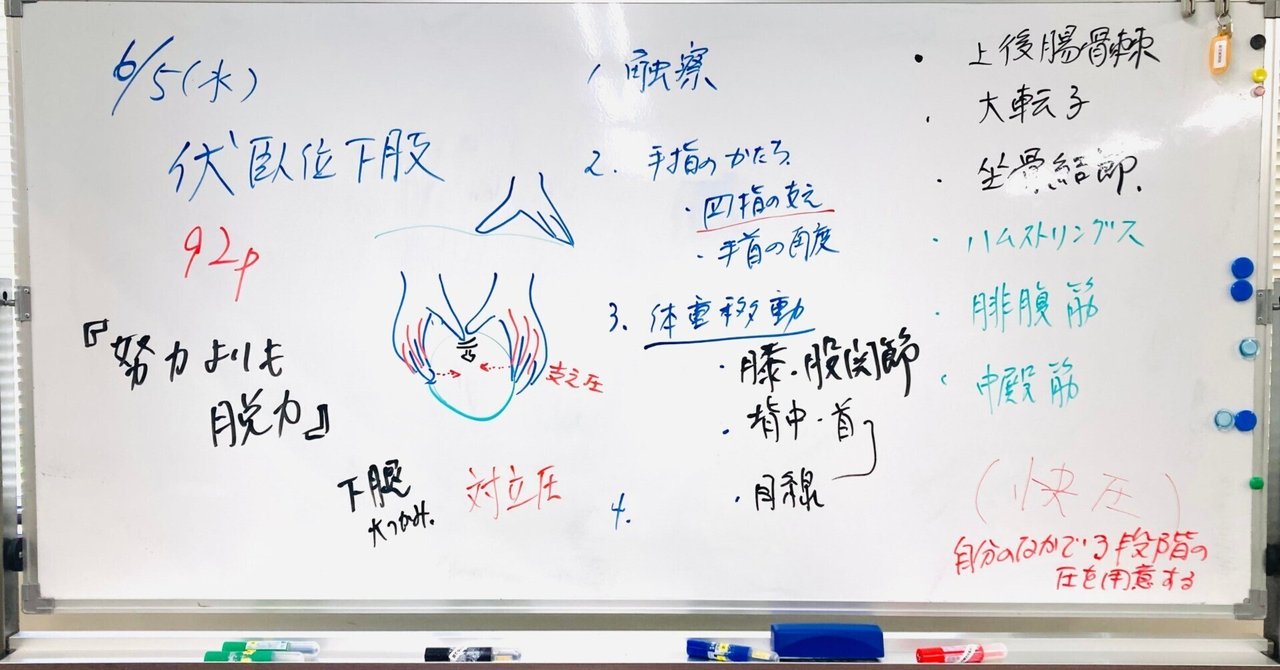 6/5(水)
伏臥位下肢
92p
『努力よりも
脱力』
支え圧
下腿
大つかみ.
対立圧
1 触察
2. 手指のかたち
・四指の支え
・手首の角度
3. 体重移動
・膝・股関節
・背中・首
・目線
4.
・上後腸骨棘
・大転子
・坐骨結節
・ハムストリングス
・腓腹筋
・中殿筋
(快圧)
自分のなかで3段階の
圧を用意する